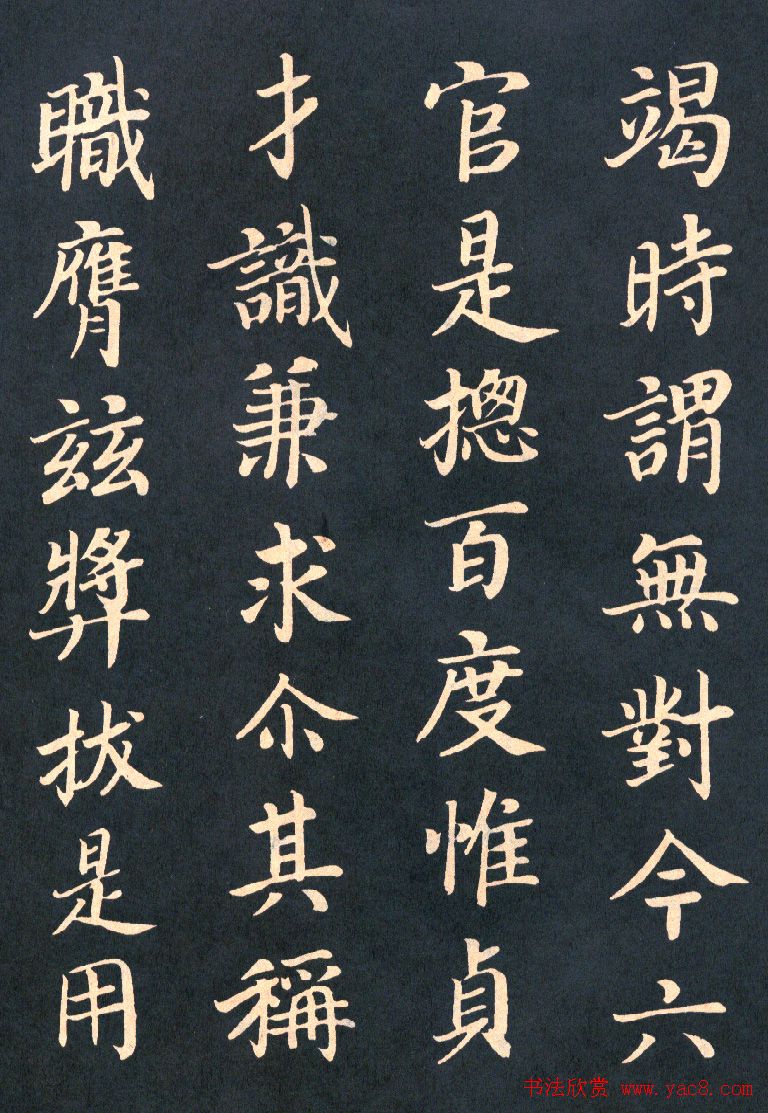 竭時謂無對今六
官是摠百度惟貞
才識兼求尒其稱
職膺茲獎拔是用
书法欣赏 www.yac8.com